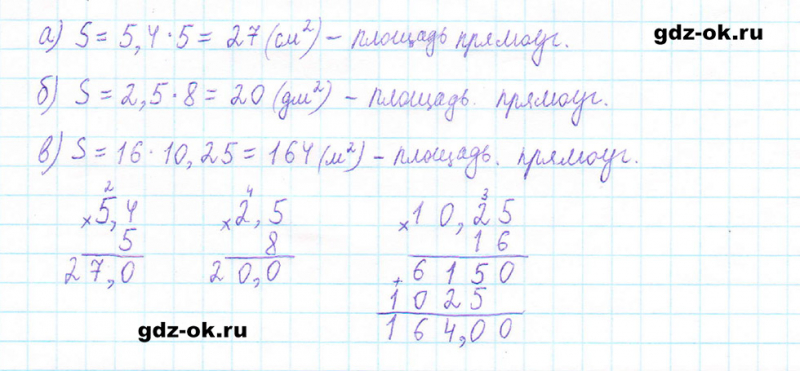 а) S = 5,4 · 5 = 27 (см²) – площадь прямоуг.
gdz-ok.ru
б) S = 2,5 · 8 = 20 (дм²) – площадь. прямоуг.
в) S = 16 · 10,25 = 164 (м²) – площадь. прямоуг.
2 4 3
× 5,4 × 2,5 × 10,25
5 8 16
27,0 20,0 + 6150
1025
164,00
gdz-ok.ru
gdz-ok.ru